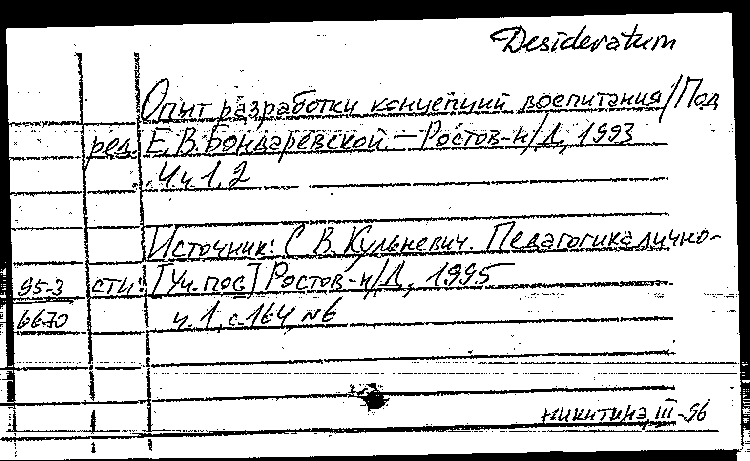 Desideratum
Опыт разработки концепций воспитания / Под
ред. Е. В. Бондаревской. — Ростов-н/Д, 1993
Ч.ч. 1, 2
Источник: С. В. Кульневич. Педагогика лично-
95-3 сти: [Уч. пос.] Ростов-н/Д, 1995
6670 ч. 1, с. 164, №6
никитина, III-96